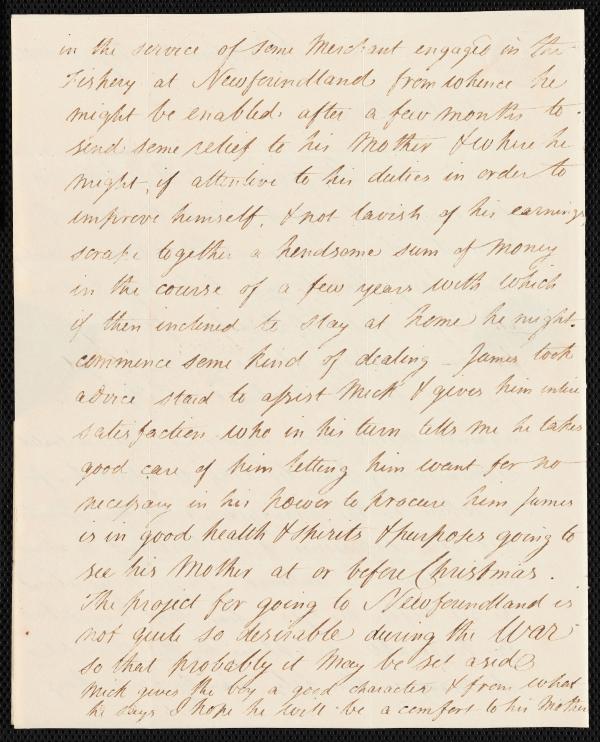 in the service of some Merchant engaged in the
Fishery at Newfoundland from whence he
might be enabled after a few months to
send some relief to his Mother & where he
might, if attentive to his duties in order to
improve himself, & not lavish of his earnings
scrape together a handsome sum of Money
in the course of a few years with which
if then inclined to stay at home he might
commence some kind of dealing – James took
advice staid to assist Mick & gives him entire
satisfaction who in his turn tells me he takes
good care of him letting him want for no
necessary in his power to procure him James
is in good health & spirits & purposes going to
see his Mother at or before Christmas.
The project for going to Newfoundland is
not quite so desirable during the War
so that probably it may be set aside
Mick gives the boy a good character & from what
he says I hope he will be a comfort to his Mother